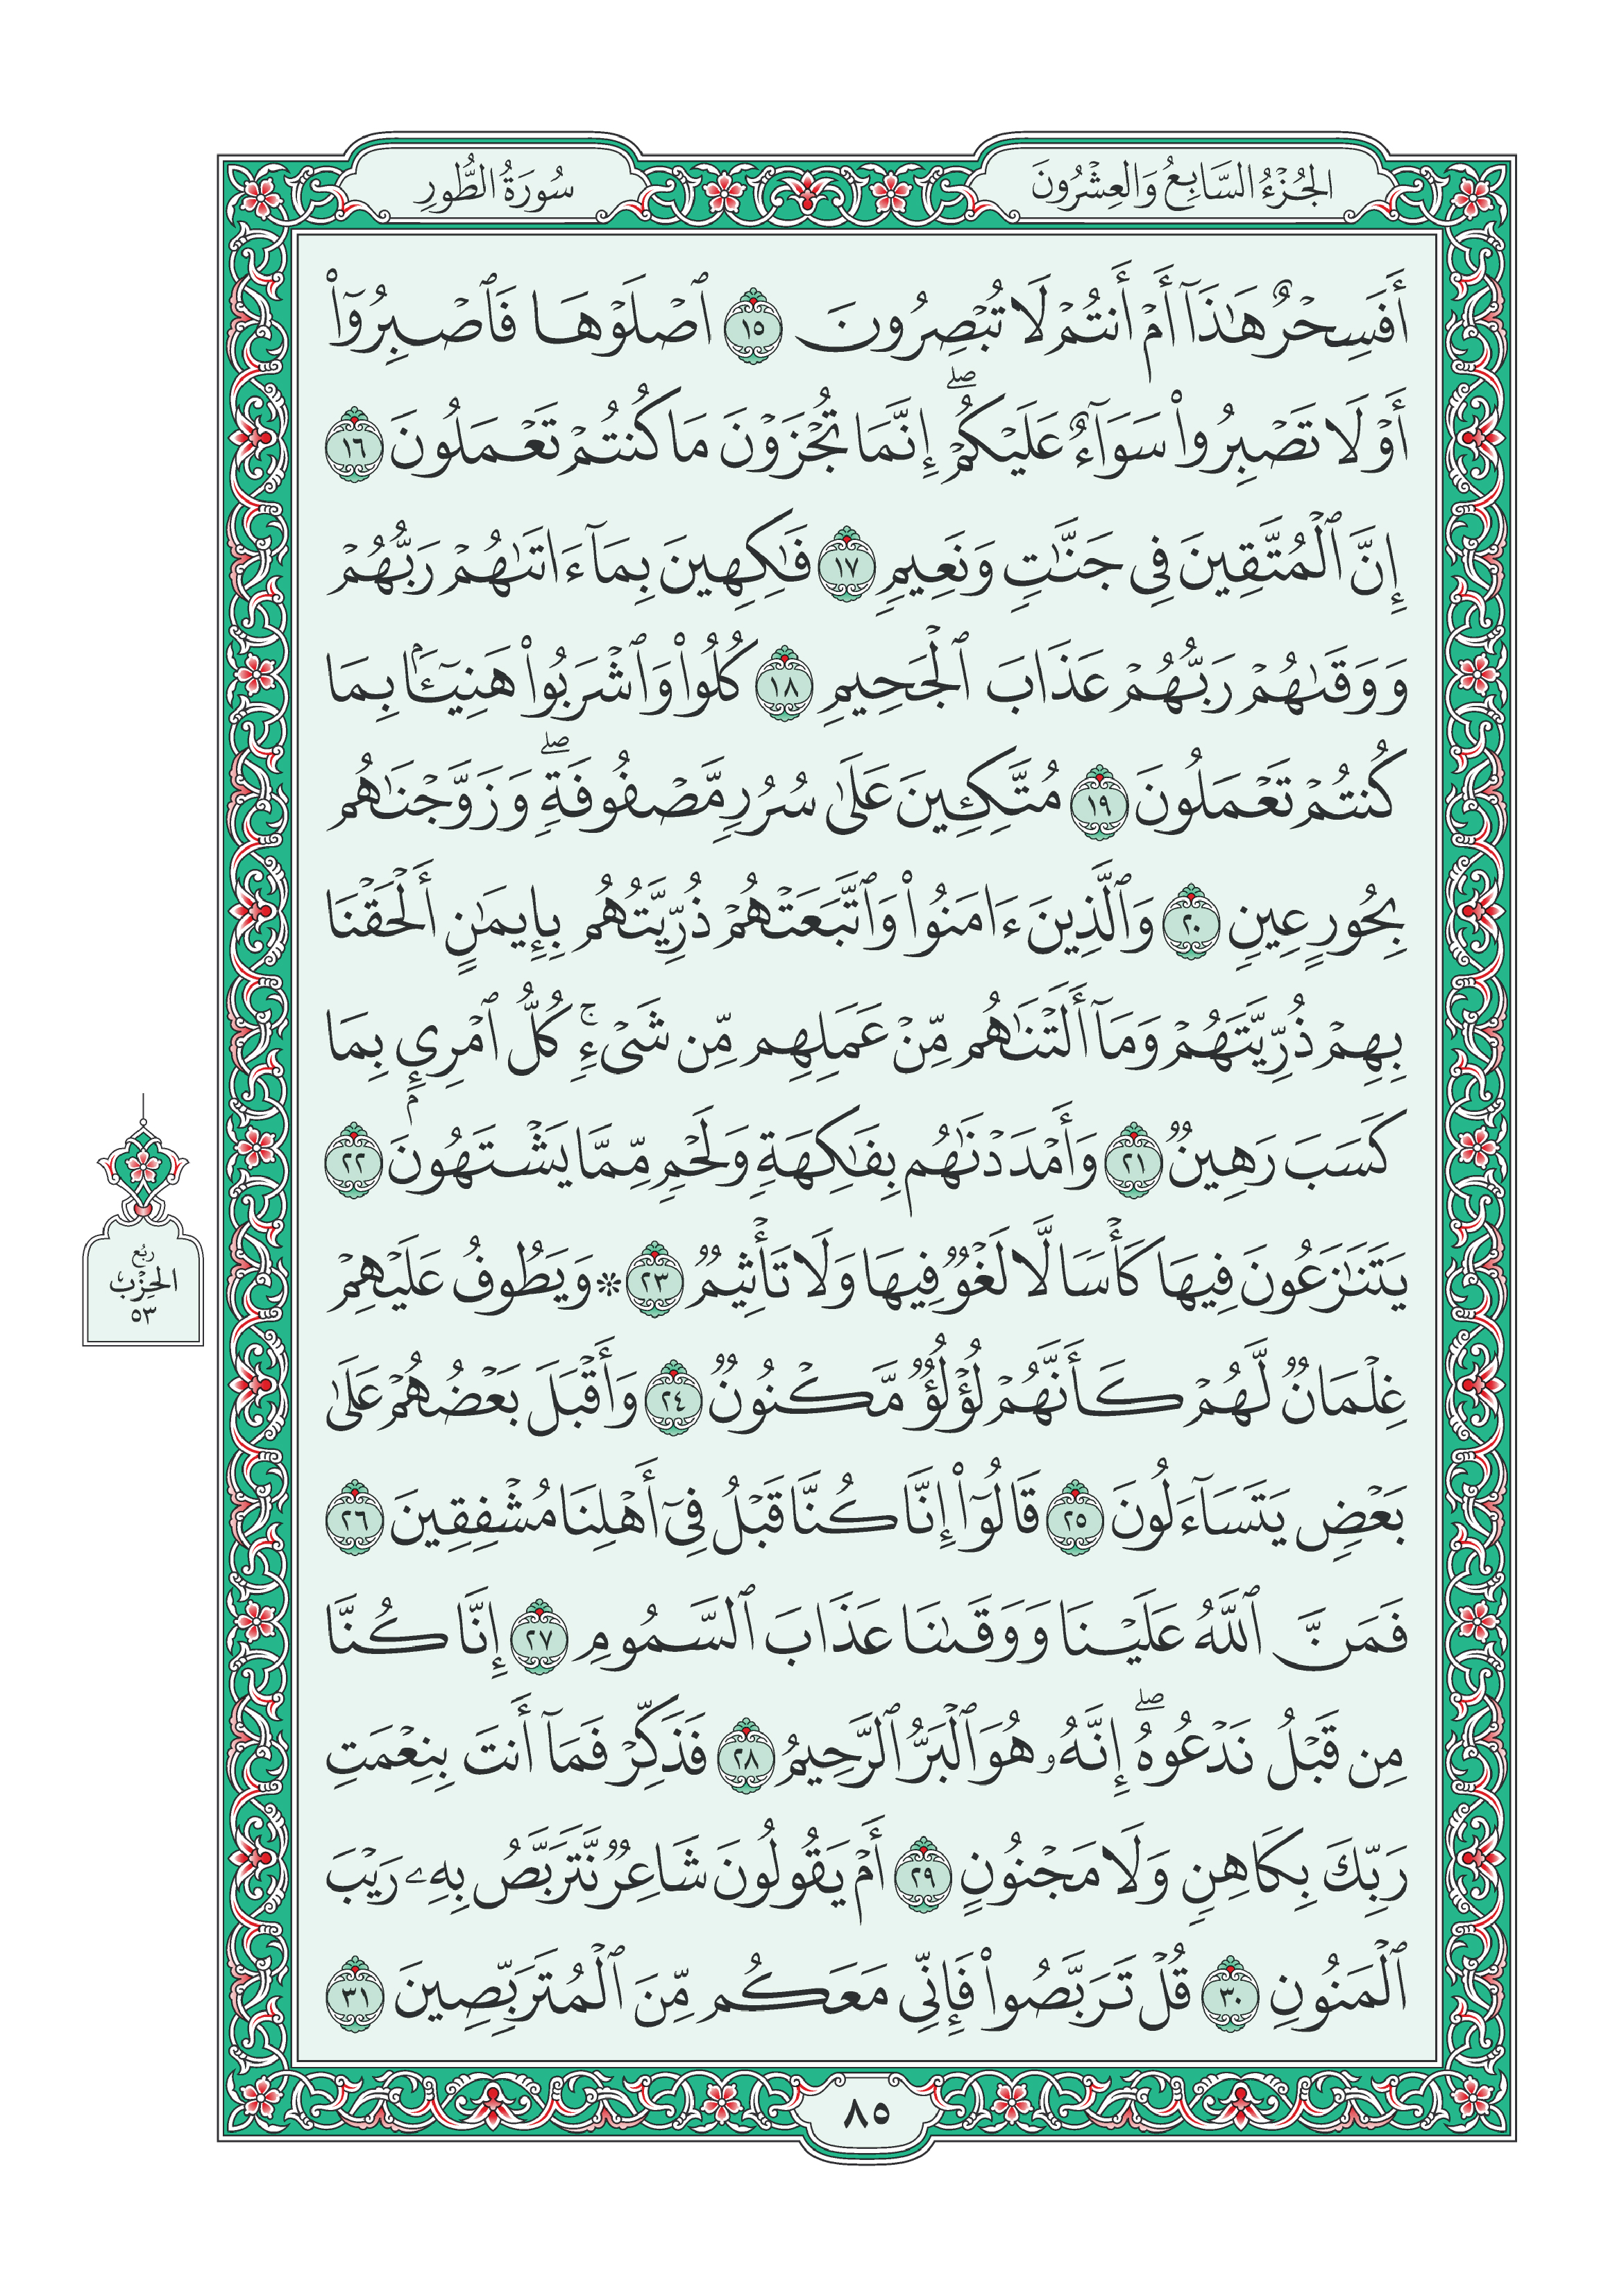 الجُزْءُ السَّابِعُ وَالعِشْرُونَ
سُورَةُ الطُّورِ
أَفَسِحْرٌ هَٰذَآ أَمْ أَنتُمْ لَا تُبْصِرُونَ ١٥ ٱصْلَوْهَا فَٱصْبِرُوٓا۟
أَوْ لَا تَصْبِرُوا۟ سَوَآءٌ عَلَيْكُمْ ۖ إِنَّمَا تُجْزَوْنَ مَا كُنتُمْ تَعْمَلُونَ ١٦
إِنَّ ٱلْمُتَّقِينَ فِى جَنَّٰتٍ وَنَعِيمٍ ١٧ فَٰكِهِينَ بِمَآ ءَاتَىٰهُمْ رَبُّهُمْ
وَوَقَىٰهُمْ رَبُّهُمْ عَذَابَ ٱلْجَحِيمِ ١٨ كُلُوا۟ وَٱشْرَبُوا۟ هَنِيٓـًٔۢا بِمَا
كُنتُمْ تَعْمَلُونَ ١٩ مُتَّكِـِٔينَ عَلَىٰ سُرُرٍ مَّصْفُوفَةٍ ۖ وَزَوَّجْنَٰهُم
بِحُورٍ عِينٍ ٢٠ وَٱلَّذِينَ ءَامَنُوا۟ وَٱتَّبَعَتْهُمْ ذُرِّيَّتُهُم بِإِيمَٰنٍ أَلْحَقْنَا
بِهِمْ ذُرِّيَّتَهُمْ وَمَآ أَلَتْنَٰهُم مِّنْ عَمَلِهِم مِّن شَىْءٍ ۚ كُلُّ ٱمْرِئٍۭ بِمَا
كَسَبَ رَهِينٌ ٢١ وَأَمْدَدْنَٰهُم بِفَٰكِهَةٍ وَلَحْمٍ مِّمَّا يَشْتَهُونَ ٢٢
يَتَنَٰزَعُونَ فِيهَا كَأْسًا لَّا لَغْوٌ فِيهَا وَلَا تَأْثِيمٌ ٢٣ ۞ وَيَطُوفُ عَلَيْهِمْ
غِلْمَانٌ لَّهُمْ كَأَنَّهُمْ لُؤْلُؤٌ مَّكْنُونٌ ٢٤ وَأَقْبَلَ بَعْضُهُمْ عَلَىٰ
بَعْضٍ يَتَسَآءَلُونَ ٢٥ قَالُوٓا۟ إِنَّا كُنَّا قَبْلُ فِىٓ أَهْلِنَا مُشْفِقِينَ ٢٦
فَمَنَّ ٱللَّهُ عَلَيْنَا وَوَقَىٰنَا عَذَابَ ٱلسَّمُومِ ٢٧ إِنَّا كُنَّا
مِن قَبْلُ نَدْعُوهُ ۖ إِنَّهُۥ هُوَ ٱلْبَرُّ ٱلرَّحِيمُ ٢٨ فَذَكِّرْ فَمَآ أَنتَ بِنِعْمَتِ
رَبِّكَ بِكَاهِنٍ وَلَا مَجْنُونٍ ٢٩ أَمْ يَقُولُونَ شَاعِرٌ نَّتَرَبَّصُ بِهِۦ رَيْبَ
ٱلْمَنُونِ ٣٠ قُلْ تَرَبَّصُوا۟ فَإِنِّى مَعَكُم مِّنَ ٱلْمُتَرَبِّصِينَ ٣١
رُبُع
الحِزْب
٥٣
٨٥